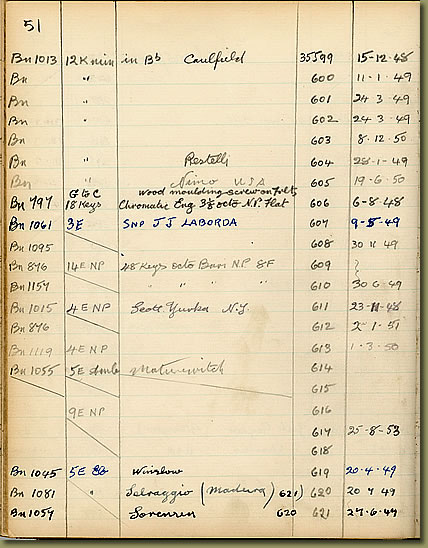 51
Bn 1013 12 K min in Bb Caulfield 35599 15-12-48
Bn " 600 11-1-49
Bn " 601 24 3 49
Bn " 602 24 3 49
Bn " 603 8-12-50
Bn " Restelli 604 28-1-49
Bn " Nino USA 605 19-6-50
G to C wood moulding screw on frets
Bn 797 18 Keys Chromatic Eng 3½ octo N.P. Flat 606 6-8-48
Bn 1061 3E SNP JJ LABORDA 607 9-5-49
Bn 1095 608 30 11 49
Bn 876 14E NP 48 Keys octo Bari N.P. 8F 609
Bn 1157 " " " 610 30 6 49
Bn 1015 4E NP Scott Yurka N.Y. 611 23-11-48
Bn 876 612 2 1 51
Bn 1119 4E NP 613 1-3-50
Bn 1055 5E Amb Matusewitch 614
615
9E NP 616
617 25-8-53
618
Bn 1045 5E EB Winslow 619 20-4-49
Bn 1081 " Selvaggio (Madura) 621) 620 20 7 49
Bn 1057 " Sorensen 620 621 27-6-49